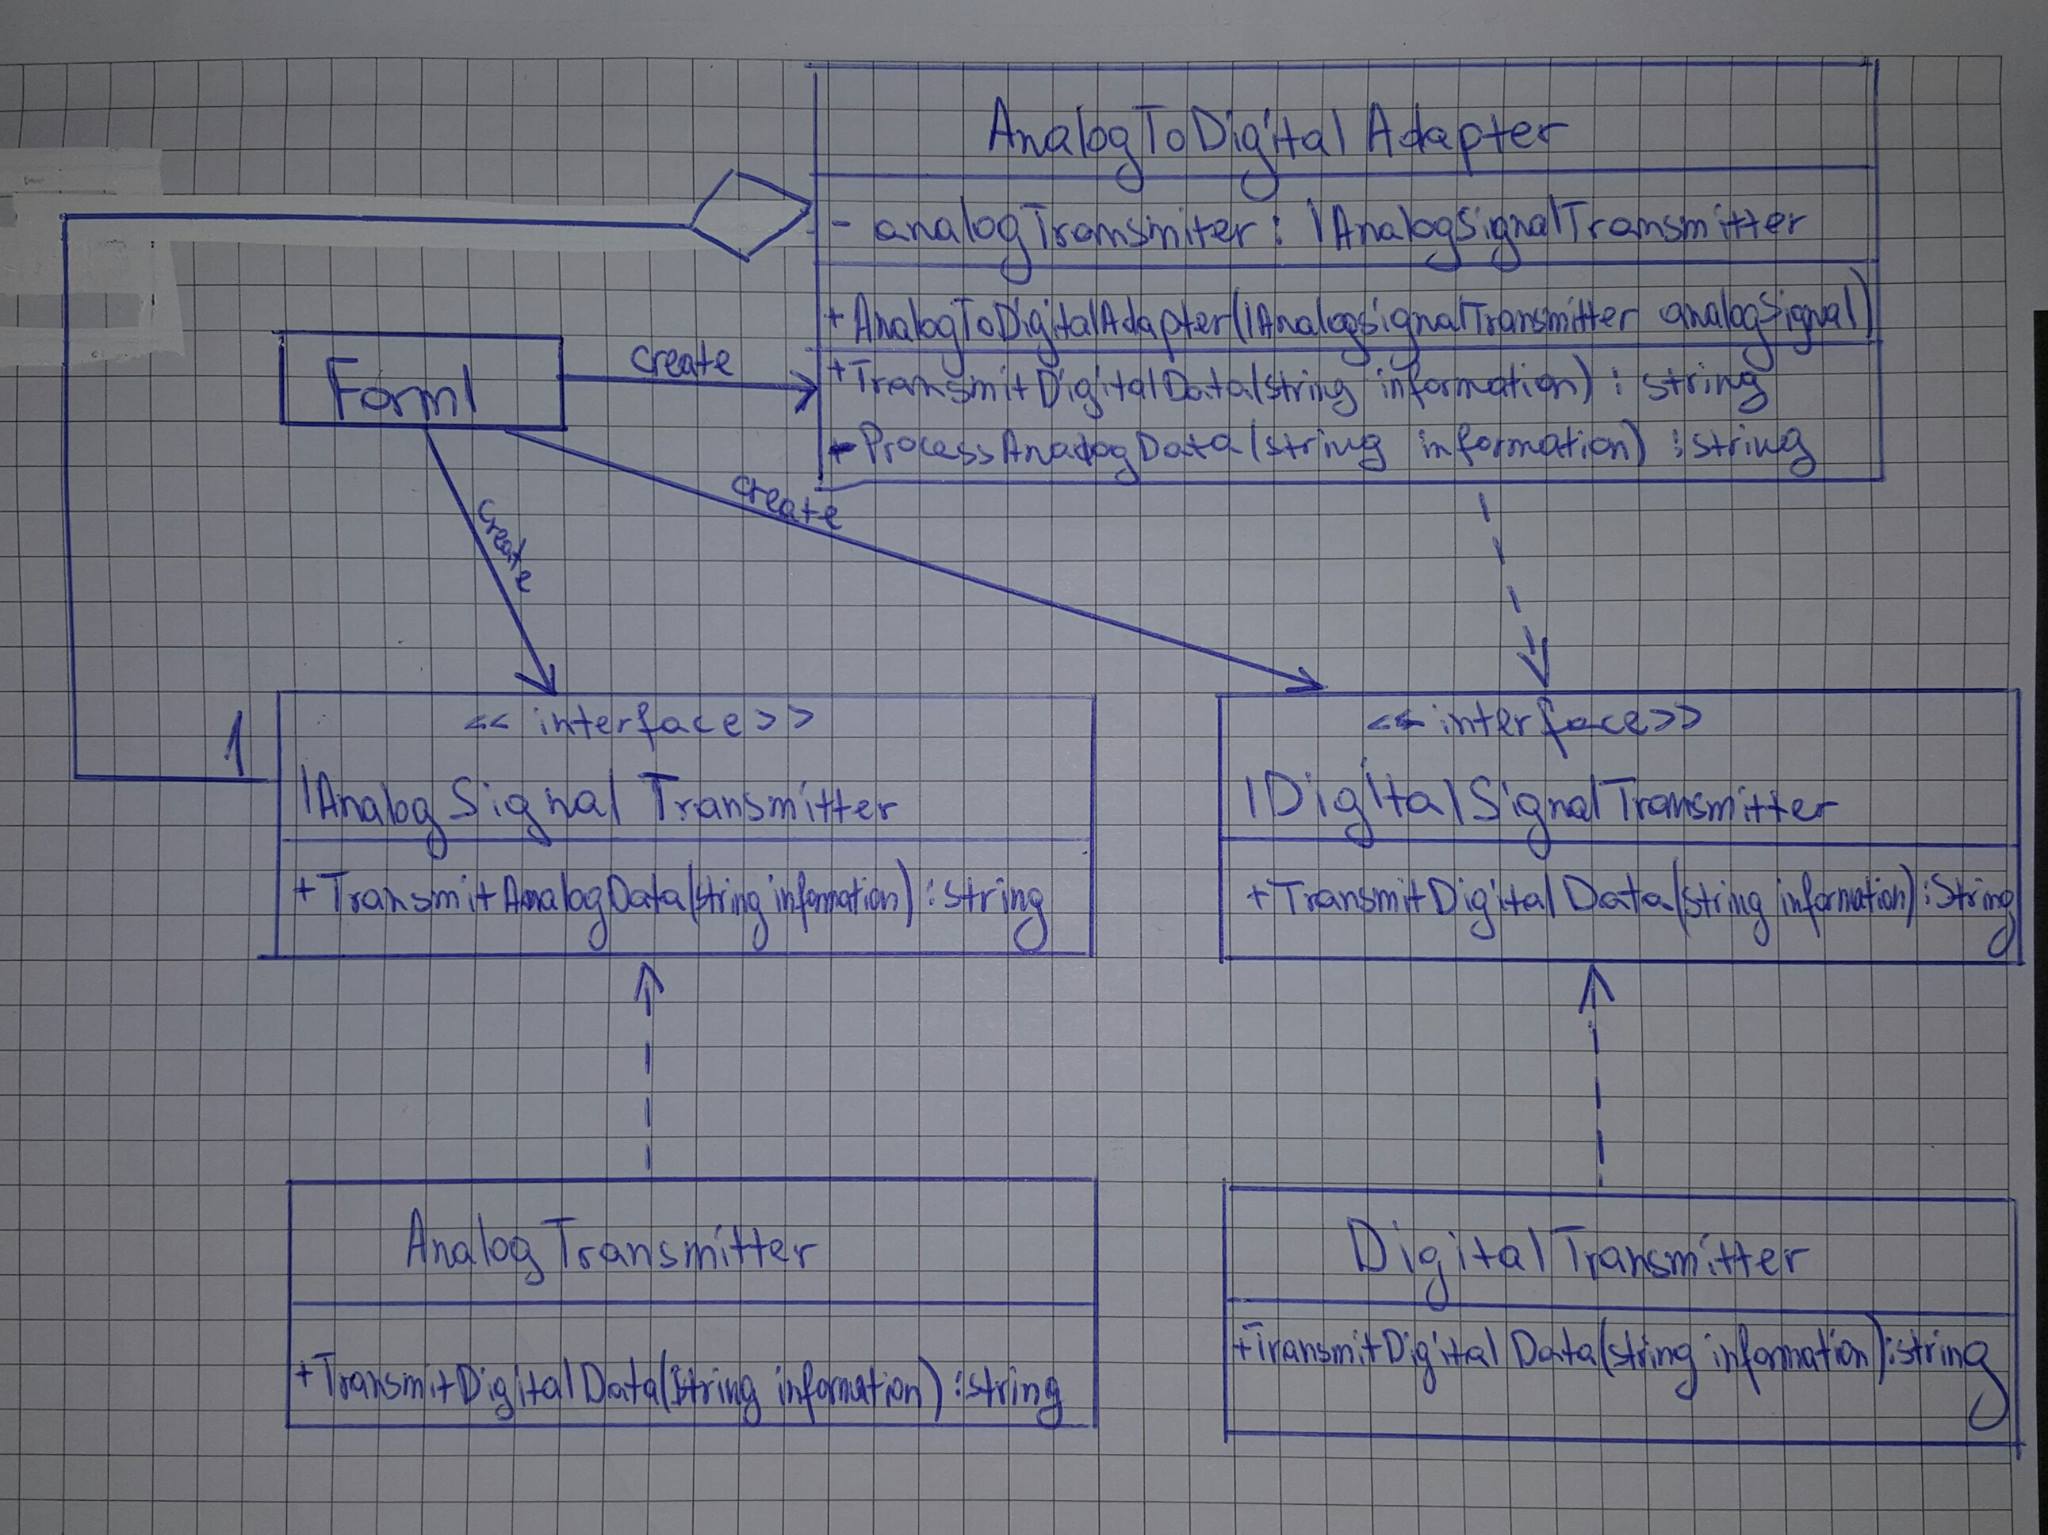 AnalogToDigitalAdapter
- analogTransmiter: IAnalogSignalTransmitter
+ AnalogToDigitalAdapter(IAnalogSignalTransmitter analogSignal)
Form1
create
+TransmitDigitalData(string information): string
- ProcessAnalogData(string information): string
create
create
<<interface>>
1
IAnalogSignalTransmitter
+TransmitAnalogData(string information): string
<<interface>>
IDigitalSignalTransmitter
+TransmitDigitalData(string information): String
AnalogTransmitter
+TransmitDigitalData(String information): string
DigitalTransmitter
+TransmitDigitalData(string information): string